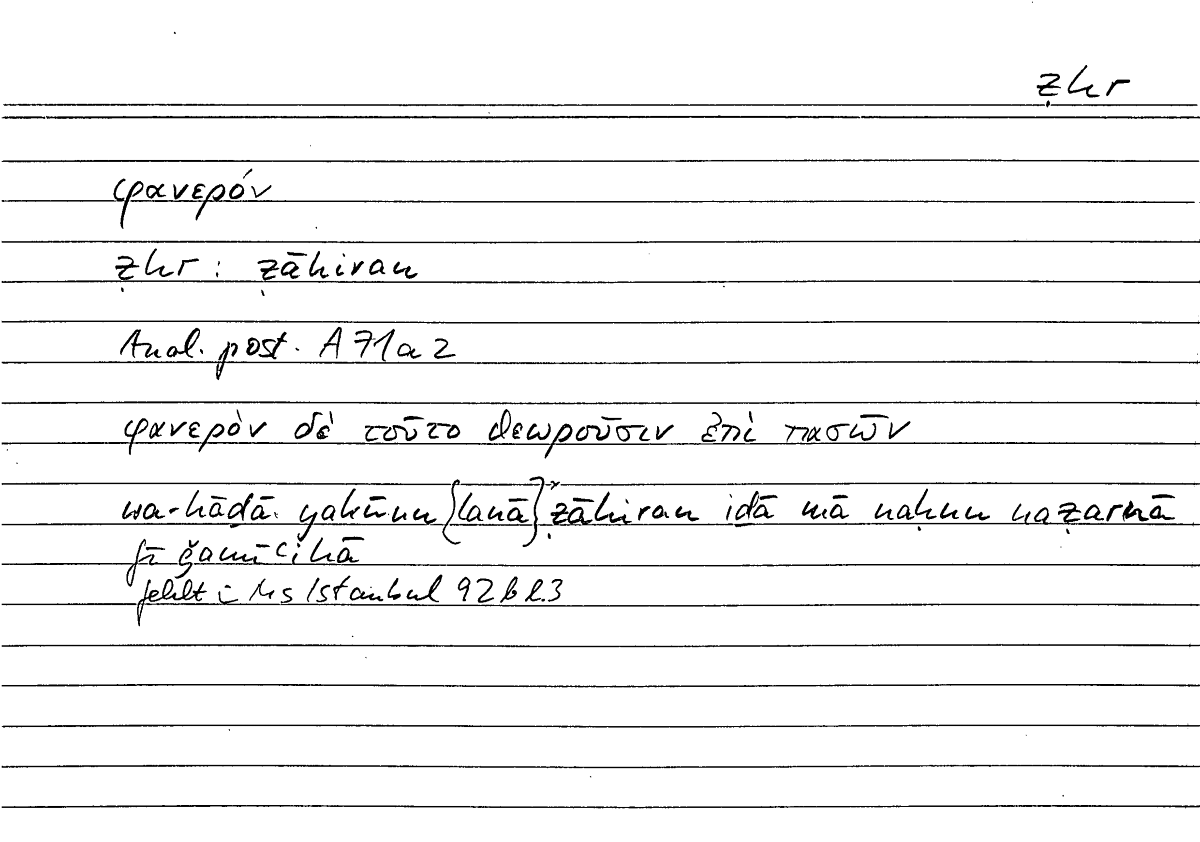 ẓhr
φανερόν
ẓhr : ẓāhiran
Anal. post. A 71a2
φανερὸν δὲ τοῦτο θεωροῦσιν ἐπὶ πασῶν
wa-hāḏā yakūnu {lanā}* ẓāhiran iḏā mā naḥnu naẓarnā
fī ǧamīʿihā
fehlt i Ms Istanbul 92b l.3